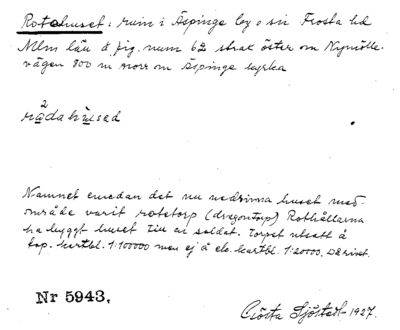 Rotahuset: ruin i Äspinge by o sn Frosta hd
Mlm län å fig. num 62 strax öster om Nymölle-
vägen 800 m norr om Äspinge kyrka
2
rådahused
Namnet emedan det nu nedrivna huset med
område varit rotetorp (dragontorp) Rothållarna
ha byggt huset till en soldat. Torpet utsatt å
top. kartbl. 1:100000 men ej å ek. kartbl. 1:20000.
Nr 5943.
Gösta Sjöstedt 1927.